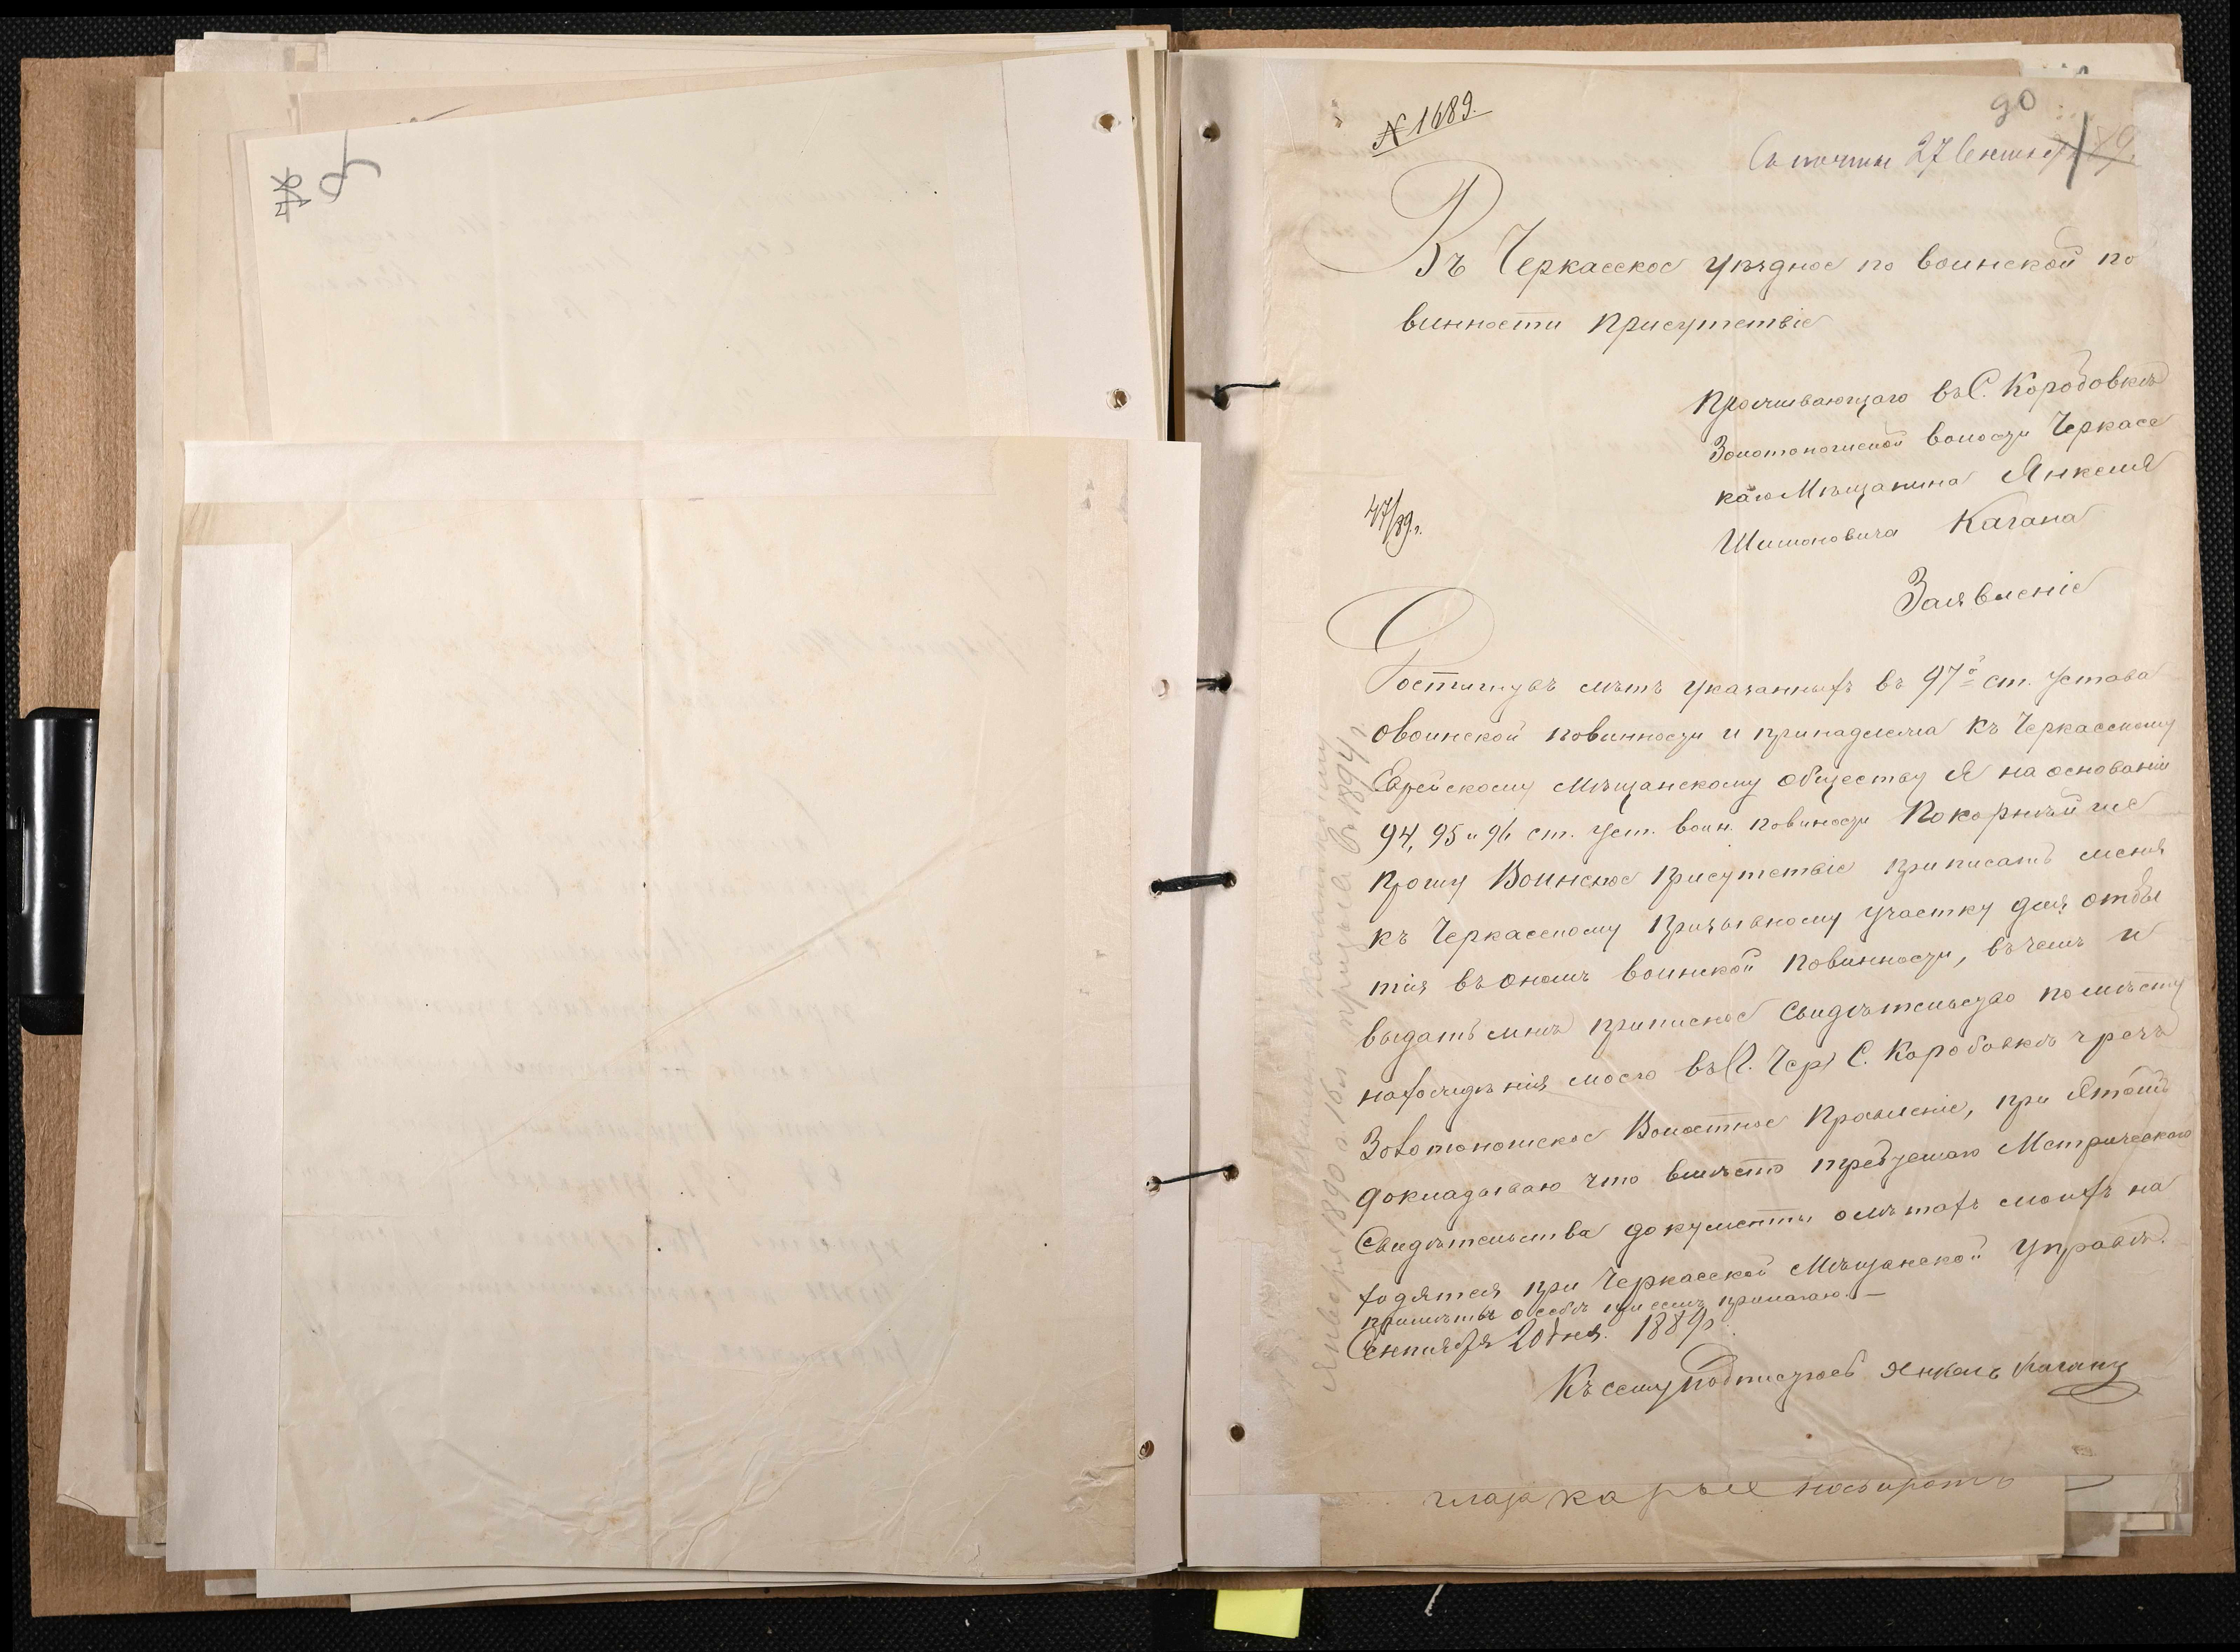 № 1689.
90
Съ почты 27 Сентяб 89
Въ Черкасское уѣздное по воинской по
винности присутствіе
Проживающаго въ С. Коробовкѣ
Золотоношской волости Черкасс
каго Мѣщанина Янкеля
Шимоновича Кагана
47/89 г.
Заявленіе
Достигнувъ лѣтъ указанныхъ въ 97й ст. Устава
овоинской повинности и принадлежа къ Черкасскому
Еврейскому Мѣщанскому обществу Я на основаніи
94, 95 и 96 ст. Уст. воин. повиности Покорнѣйше
прошу Воинское присутствіе приписать меня
къ Черкасскому призывному участку для отбы
тія въ ономъ воинской повинности, въ чемъ и
выдать мнѣ приписное Свидѣтельство по мѣсту
нахожденія моего въ С. Коробовкѣ чрезъ
Золотоношское Волостное Правленіе, при Этомъ
докладываю что вмѣсто требуемаго Метрическаго
Свидѣтельства документы олѣтахъ моихъ на
ходятся при Черкасской Мѣщанской Управѣ.
примѣты особѣ при семъ прилагаю. —
Сентября 20 дня. 1889 г.
Къ сему подписуюсь Янкель Каганъ
Января 1890 г. призыва въ 1894 г.
глаза карые носъ иротъ